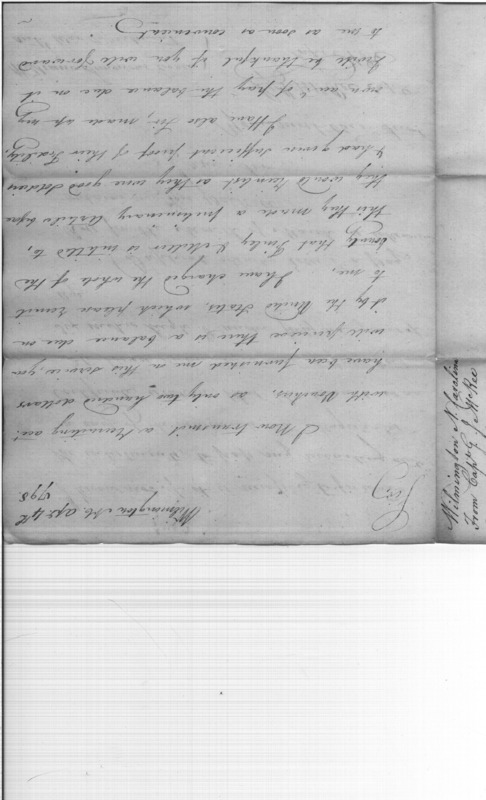 Wilmington Apl 4th
1798
Sir
I Now transmit a Recruiting acct.
with Vouchers, as only two hundred dollars
have been furnished me on this service, you
will perceive there is a balance due on
it by the United States, which please remit
to me, I have charged the whole of the
bounty that Finley & is intitled to,
this they made a preliminary Article before
they would reinlist as they were good soldiers
& had given sufficient proof of their Fidelity.
Have also made up my
own acct. of pay the balance due on it
I will be thankful if you will forward
to me as soon as convenient
Wilmington N. Carolina
From Capt. G. J. McRee